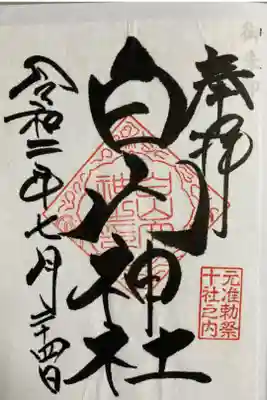 奉拝
白山神社
令和二年七月二十四日
元准勅祭
十社之内